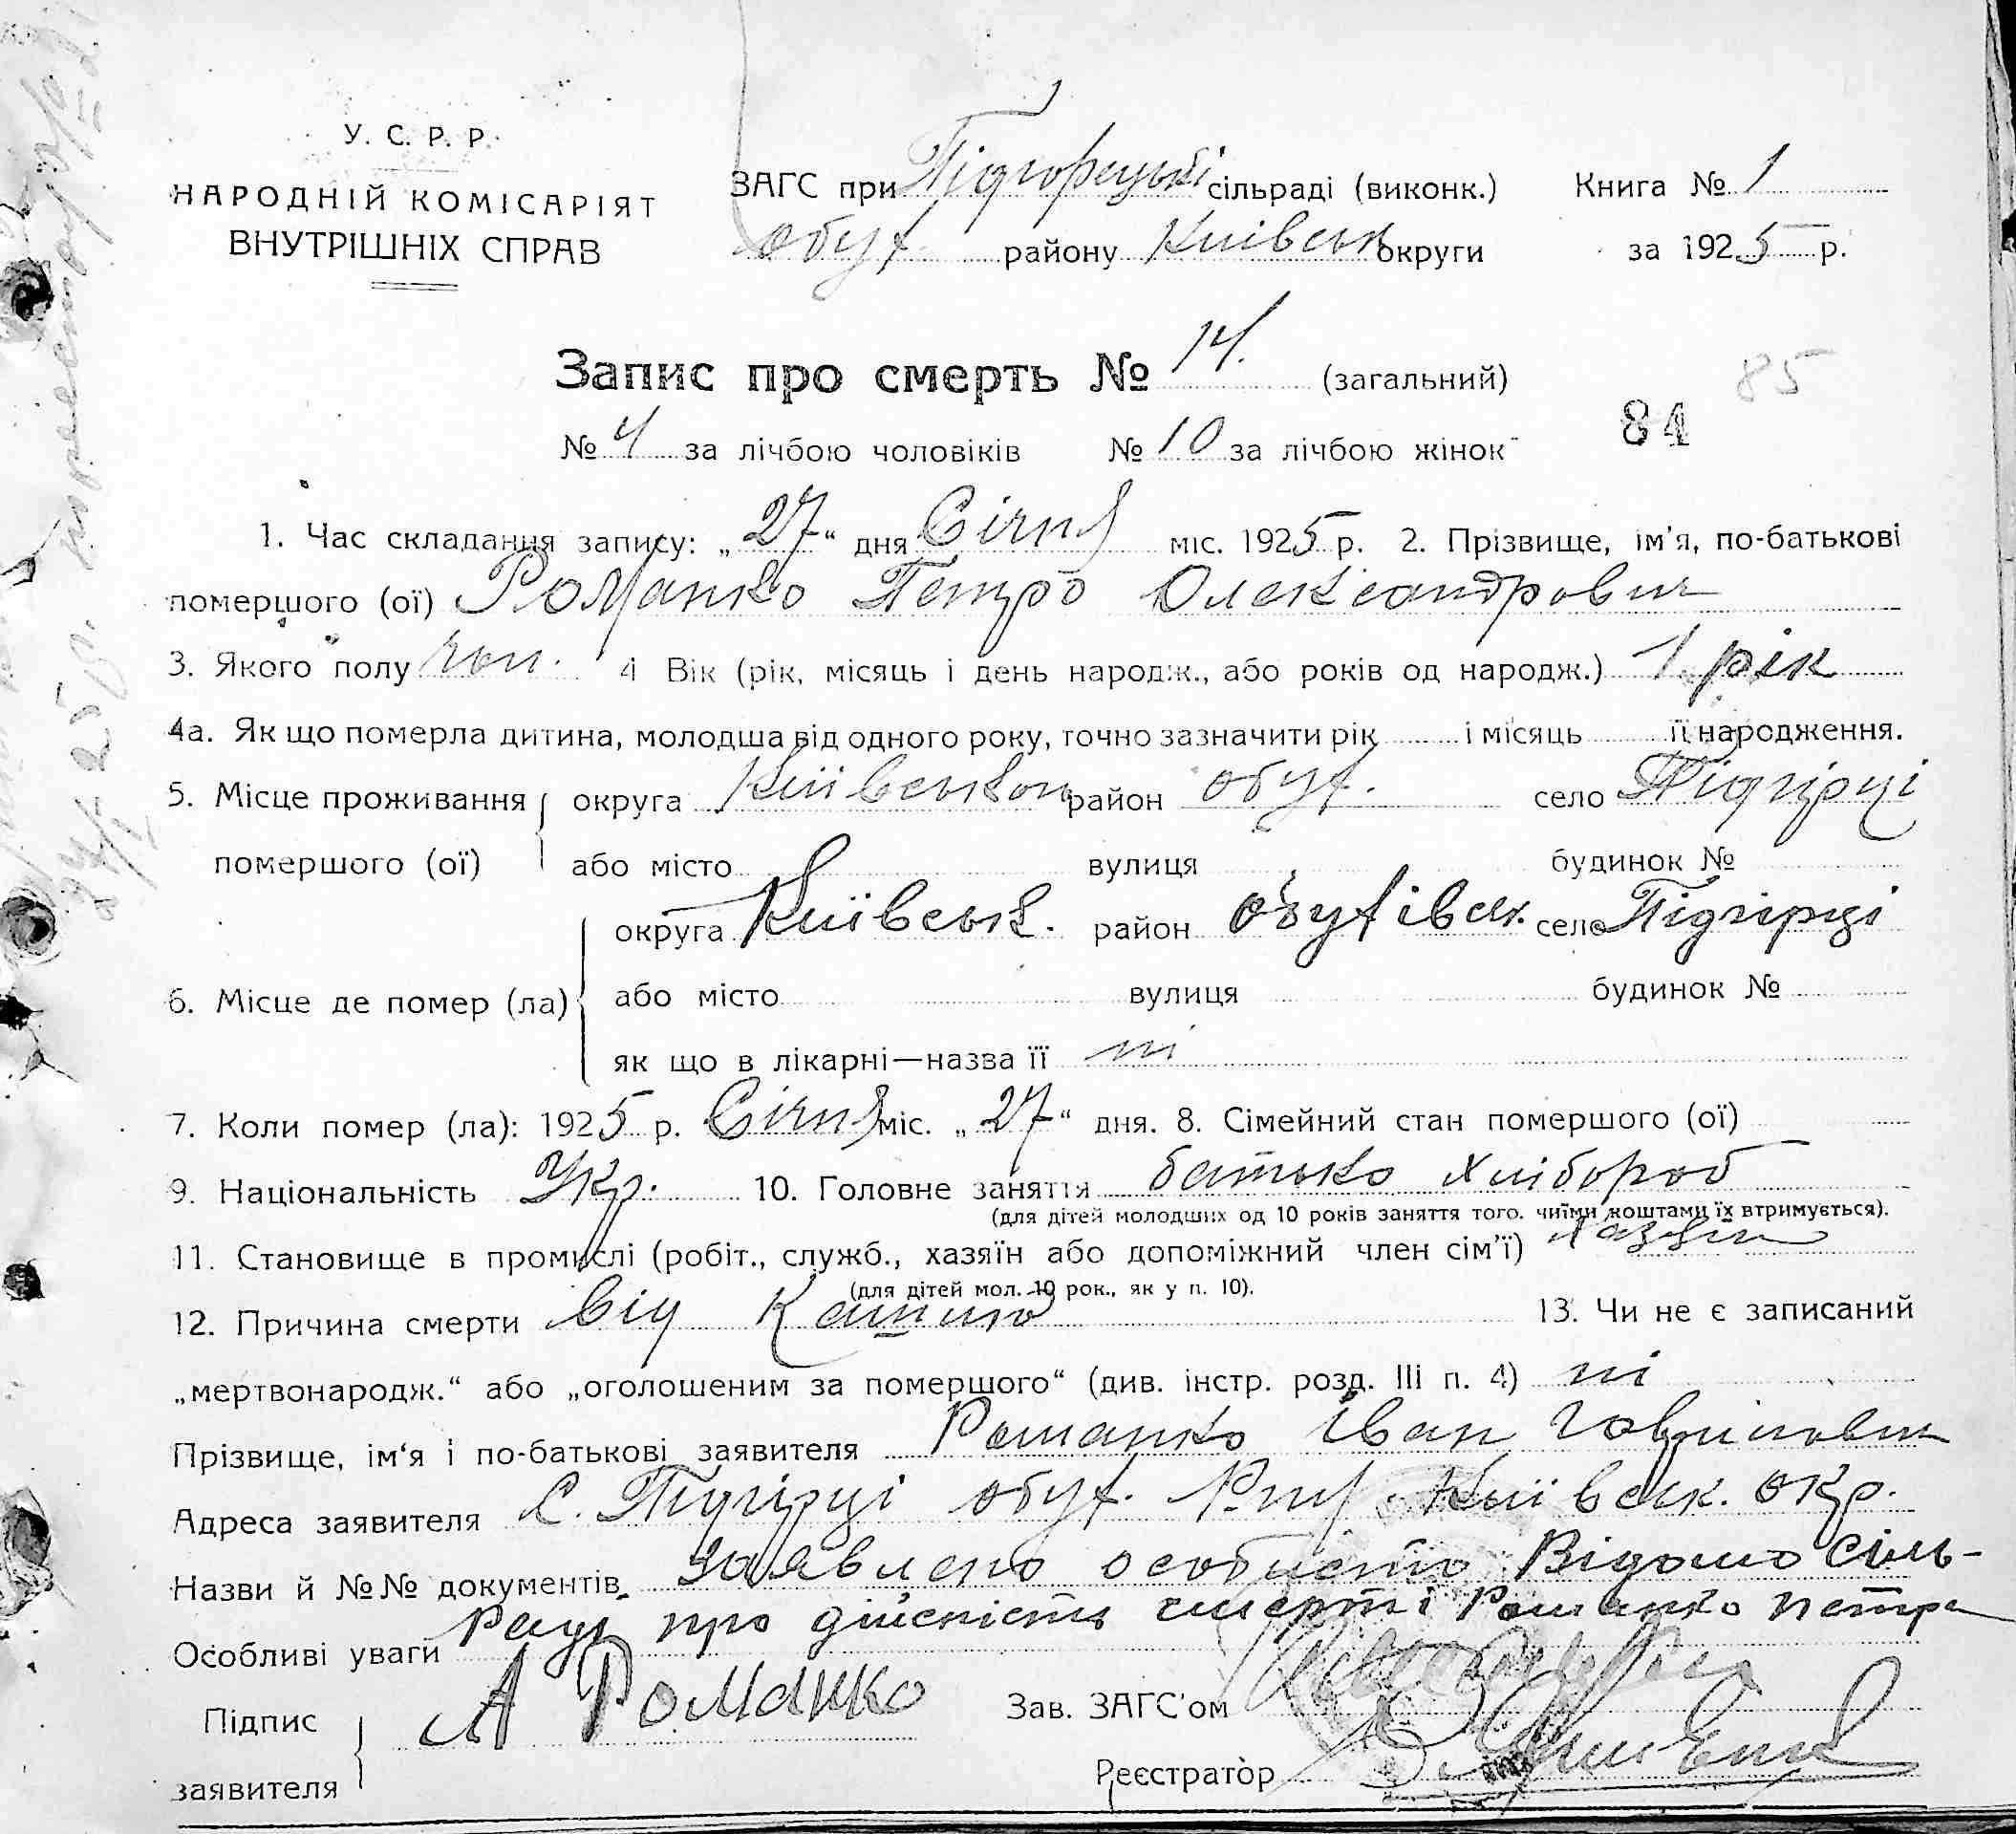 У. С. Р. Р.
НАРОДНІЙ КОМІСАРІЯТ
ВНУТРІШНІХ СПРАВ
ЗАГС при Підгорецькі сільраді (виконк.) Книга № 1
Обух району Київськ округи за 1925 р.
Запис про смерть № 14. (загальний)
85
84
№ 4 за лічбою чоловіків № 10 за лічбою жінок
1. Час складання запису: „27“ дня Січня міс. 1925 р. 2. Прізвище, ім'я, по-батькові
помершого (ої) Романко Петро Олександрович
3. Якого полу чол. 4 Вік (рік, місяць і день народж., або років од народж.) 1 рік
4а. Як що померла дитина, молодша від одного року, точно зазначити рік і місяць її народження.
5. Місце проживання округа Київської район обух. село Підгірці
помершого (ої) або місто вулиця будинок №
округа Київськ. район обухівск. село Підгірці
6. Місце де помер (ла) або місто вулиця будинок №
як що в лікарні—назва її ні
7. Коли помер (ла): 1925 р. Січня міс. „27“ дня. 8. Сімейний стан помершого (ої)
9. Національність Укр. 10. Головне заняття батько хлібороб
(для дітей молодших од 10 років заняття того, чиїми коштами їх втримується).
11. Становище в промислі (робіт., служб., хазяїн або допоміжний член сім'ї) хазяїн
(для дітей мол. 10 рок., як у п. 10).
12. Причина смерти від Кашлю 13. Чи не є записаний
„мертвонародж.“ або „оголошеним за помершого“ (див. інстр. розд. III п. 4) ні
Прізвище, ім'я і по-батькові заявителя Романко Іван Гаврилович
Адреса заявителя С. Підгірці обух. Київськ. окр.
Назви й №№ документів. Заявлено особисто Відомо Сіль-
Раді про дійсність смерті Романко Петра
Особливі уваги
Підпис
заявителя
А Романко
Зав. ЗАГС'ом
Реєстратор